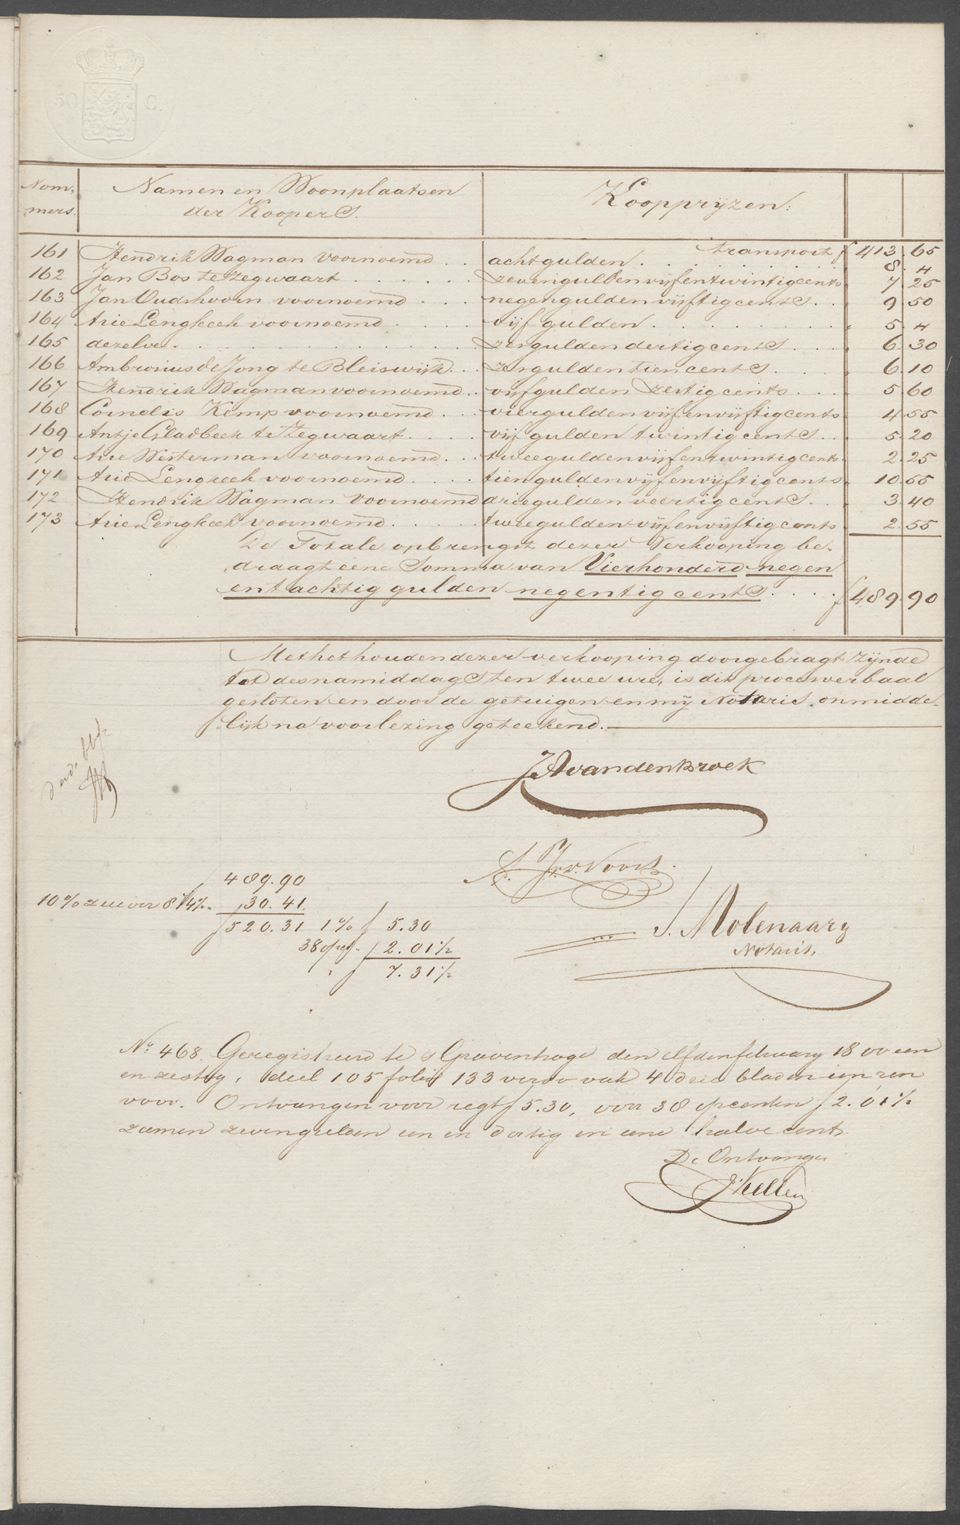 50 C.
Nommers. Namen en Woonplaatsen der Koopers. Koopprijzen:
transport ƒ 413 65
161 Hendrik Wagman voornoemd achtgulden 8 "
162 Jan Bos te Zegwaart zevengulden vijfentwintigcents 7 25
163 Jan Oudshoorn voornoemd negengulden vijftigcents 9 50
164 Arie Lengkeek voornoemd vijfgulden 5 "
165 dezelve zesgulden dertigcents 6 30
166 Ambrosius de Jong te Bleiswijk zesgulden tiencents 6 10
167 Hendrik Wagman voornoemd vijfgulden zestigcents 5 60
168 Cornelis Kemp voornoemd viergulden vijfenvijftigcents 4 55
169 Antje Gladbeek te Zegwaart vijfgulden twintigcents 5 20
170 Arie Westerman voornoemd tweegulden vijfentwintigcents 2 25
171 Arie Lengkeek voornoemd tiengulden vijfenvijftigcents 10 55
172 Hendrik Wagman voornoemd driegulden veertigcents 3 40
173 Arie Lengkeek voornoemd tweegulden vijfenvijftigcents 2 55
De Totale opbrengst dezer Verkooping be-
draagt eene Somma van Vierhonderd negen
en tachtig gulden negentig cents ƒ 489 90
Met het houden dezer verkooping doorgebragt zijnde
tot des namiddags ten twee ure, is dit procesverbaal
gesloten en door de getuigen en mij Notaris, onmidde-
lijk na voorlezing geteekend.
derde blad
JA van den Broek
A. J. v. Voort
J. Molenaar
Notaris.
489.90
10% 30.41
ƒ 520.31 1% ƒ 5.30
38 opc. ƒ 2.01½
ƒ 7.31½
No. 468. Geregistreerd te s Gravenhage den elfden february 1800 een
en zestig, deel 105 folio 133 verso vak 4 drie bladen een ren
voor. Ontvangen voor regt ƒ 5.30, voor 38 opcenten ƒ 2.01½
zamen zevengulden een en dertig en eene halve cent.
De Ontvanger